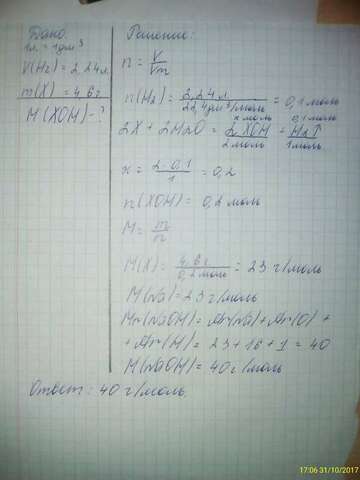 Дано:
1л. = 1дм³
V(H₂) = 2,24л
m(X) = 4,6г
M(XOH) - ?
Решение:
n = V/Vm
n(H₂) = 2,24л/22,4дм³/моль = 0,1 моль
x моль 0,1 моль
2X + 2H₂O = 2XOH + H₂↑
2 моль 1 моль
x = 2·0,1/1 = 0,2
n(XOH) = 0,2 моль
M = m/n
M(X) = 4,6г/0,2моль = 23 г/моль
M(Na) = 23 г/моль
Mr(NaOH) = Ar(Na) + Ar(O) +
+ Ar(H) = 23 + 16 + 1 = 40
M(NaOH) = 40 г/моль
Ответ: 40 г/моль.
17:06 31/10/2017